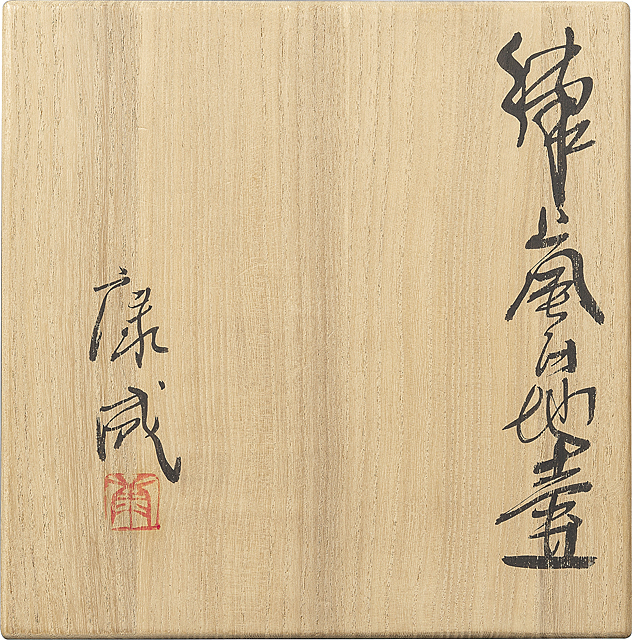 練上嵐白地壷
康成